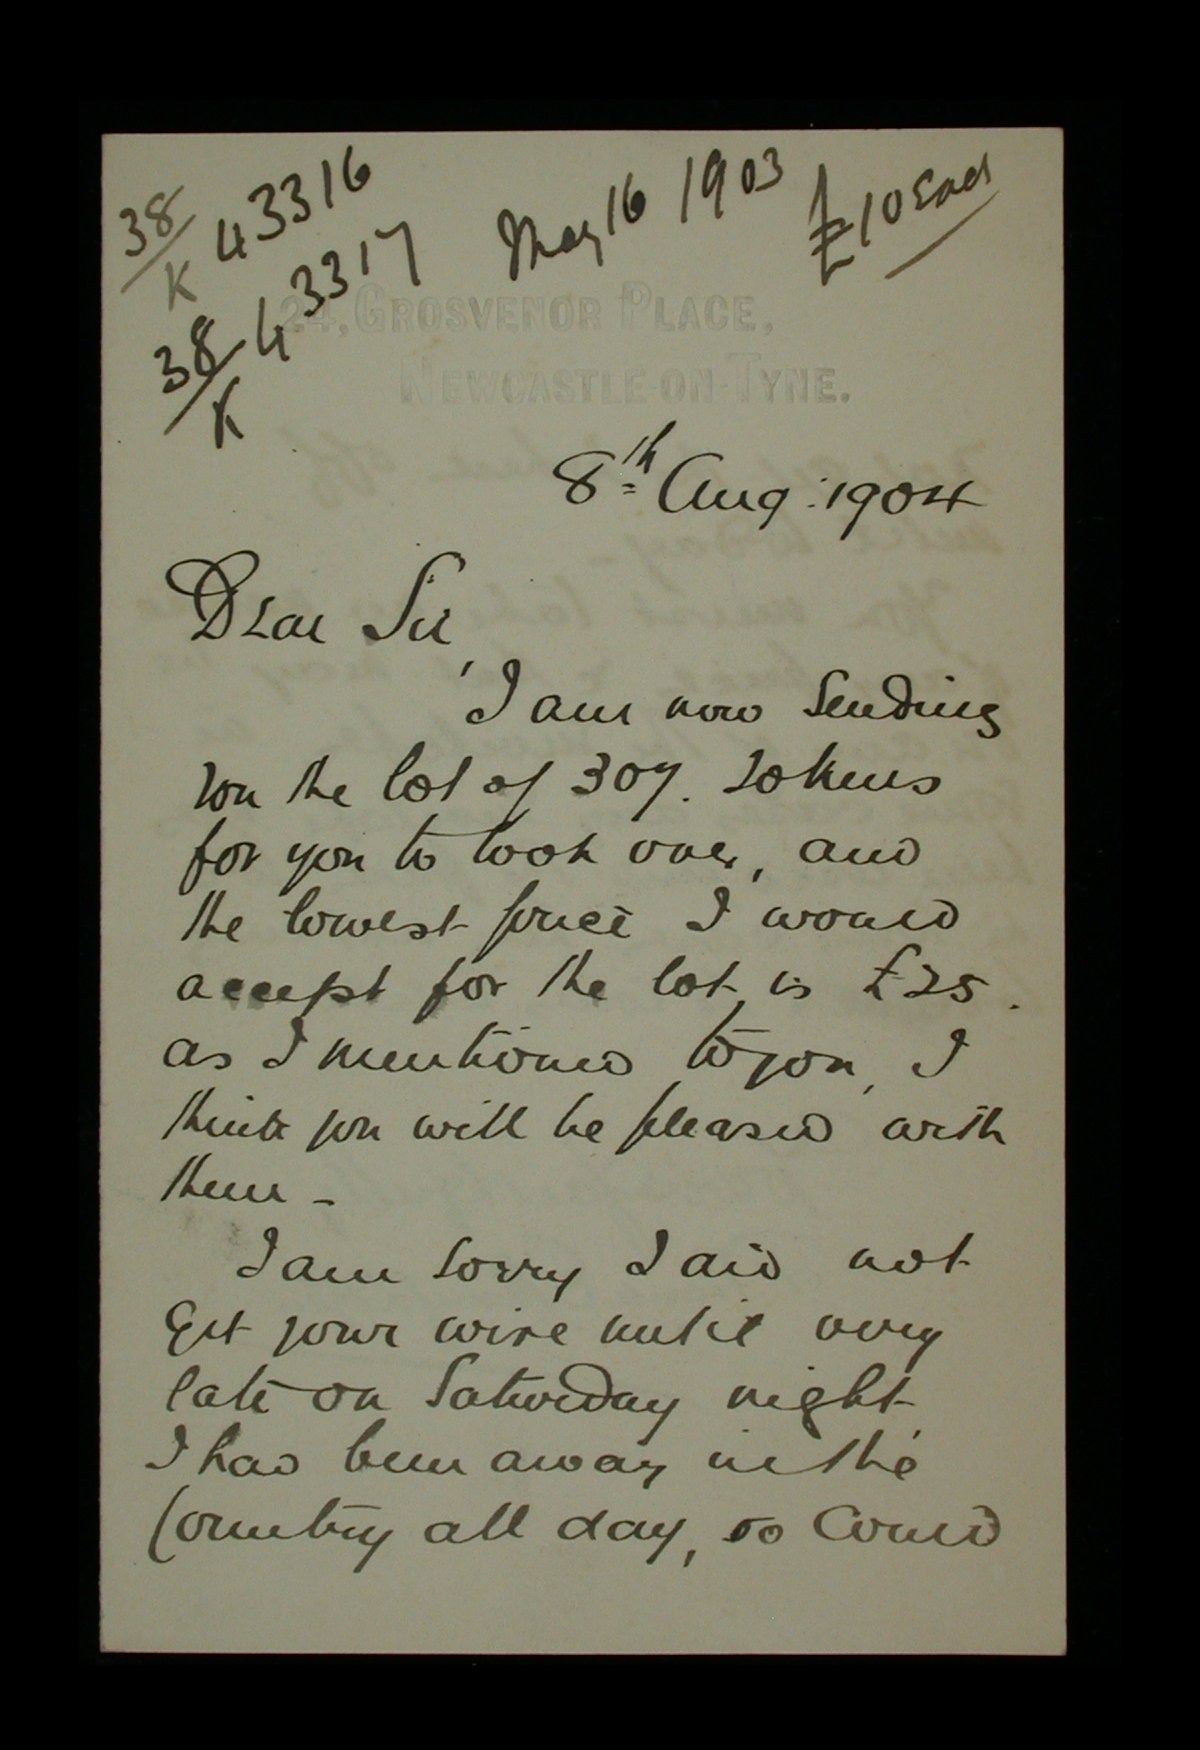 38/K 43316
38/K 43317
May 16 1903
£10 Each
24, GROSVENOR PLACE,
NEWCASTLE-ON-TYNE.
8th Aug: 1904
Dear Sir,
I am now sending
you the lot of 307. Tokens
for you to look over, and
the lowest price I would
accept for the lot is £25.
as I mentioned to you, I
think you will be pleased with
them -
I am sorry I did not
get your wire until very
late on Saturday night,
I had been away in the
Country all day, so Could